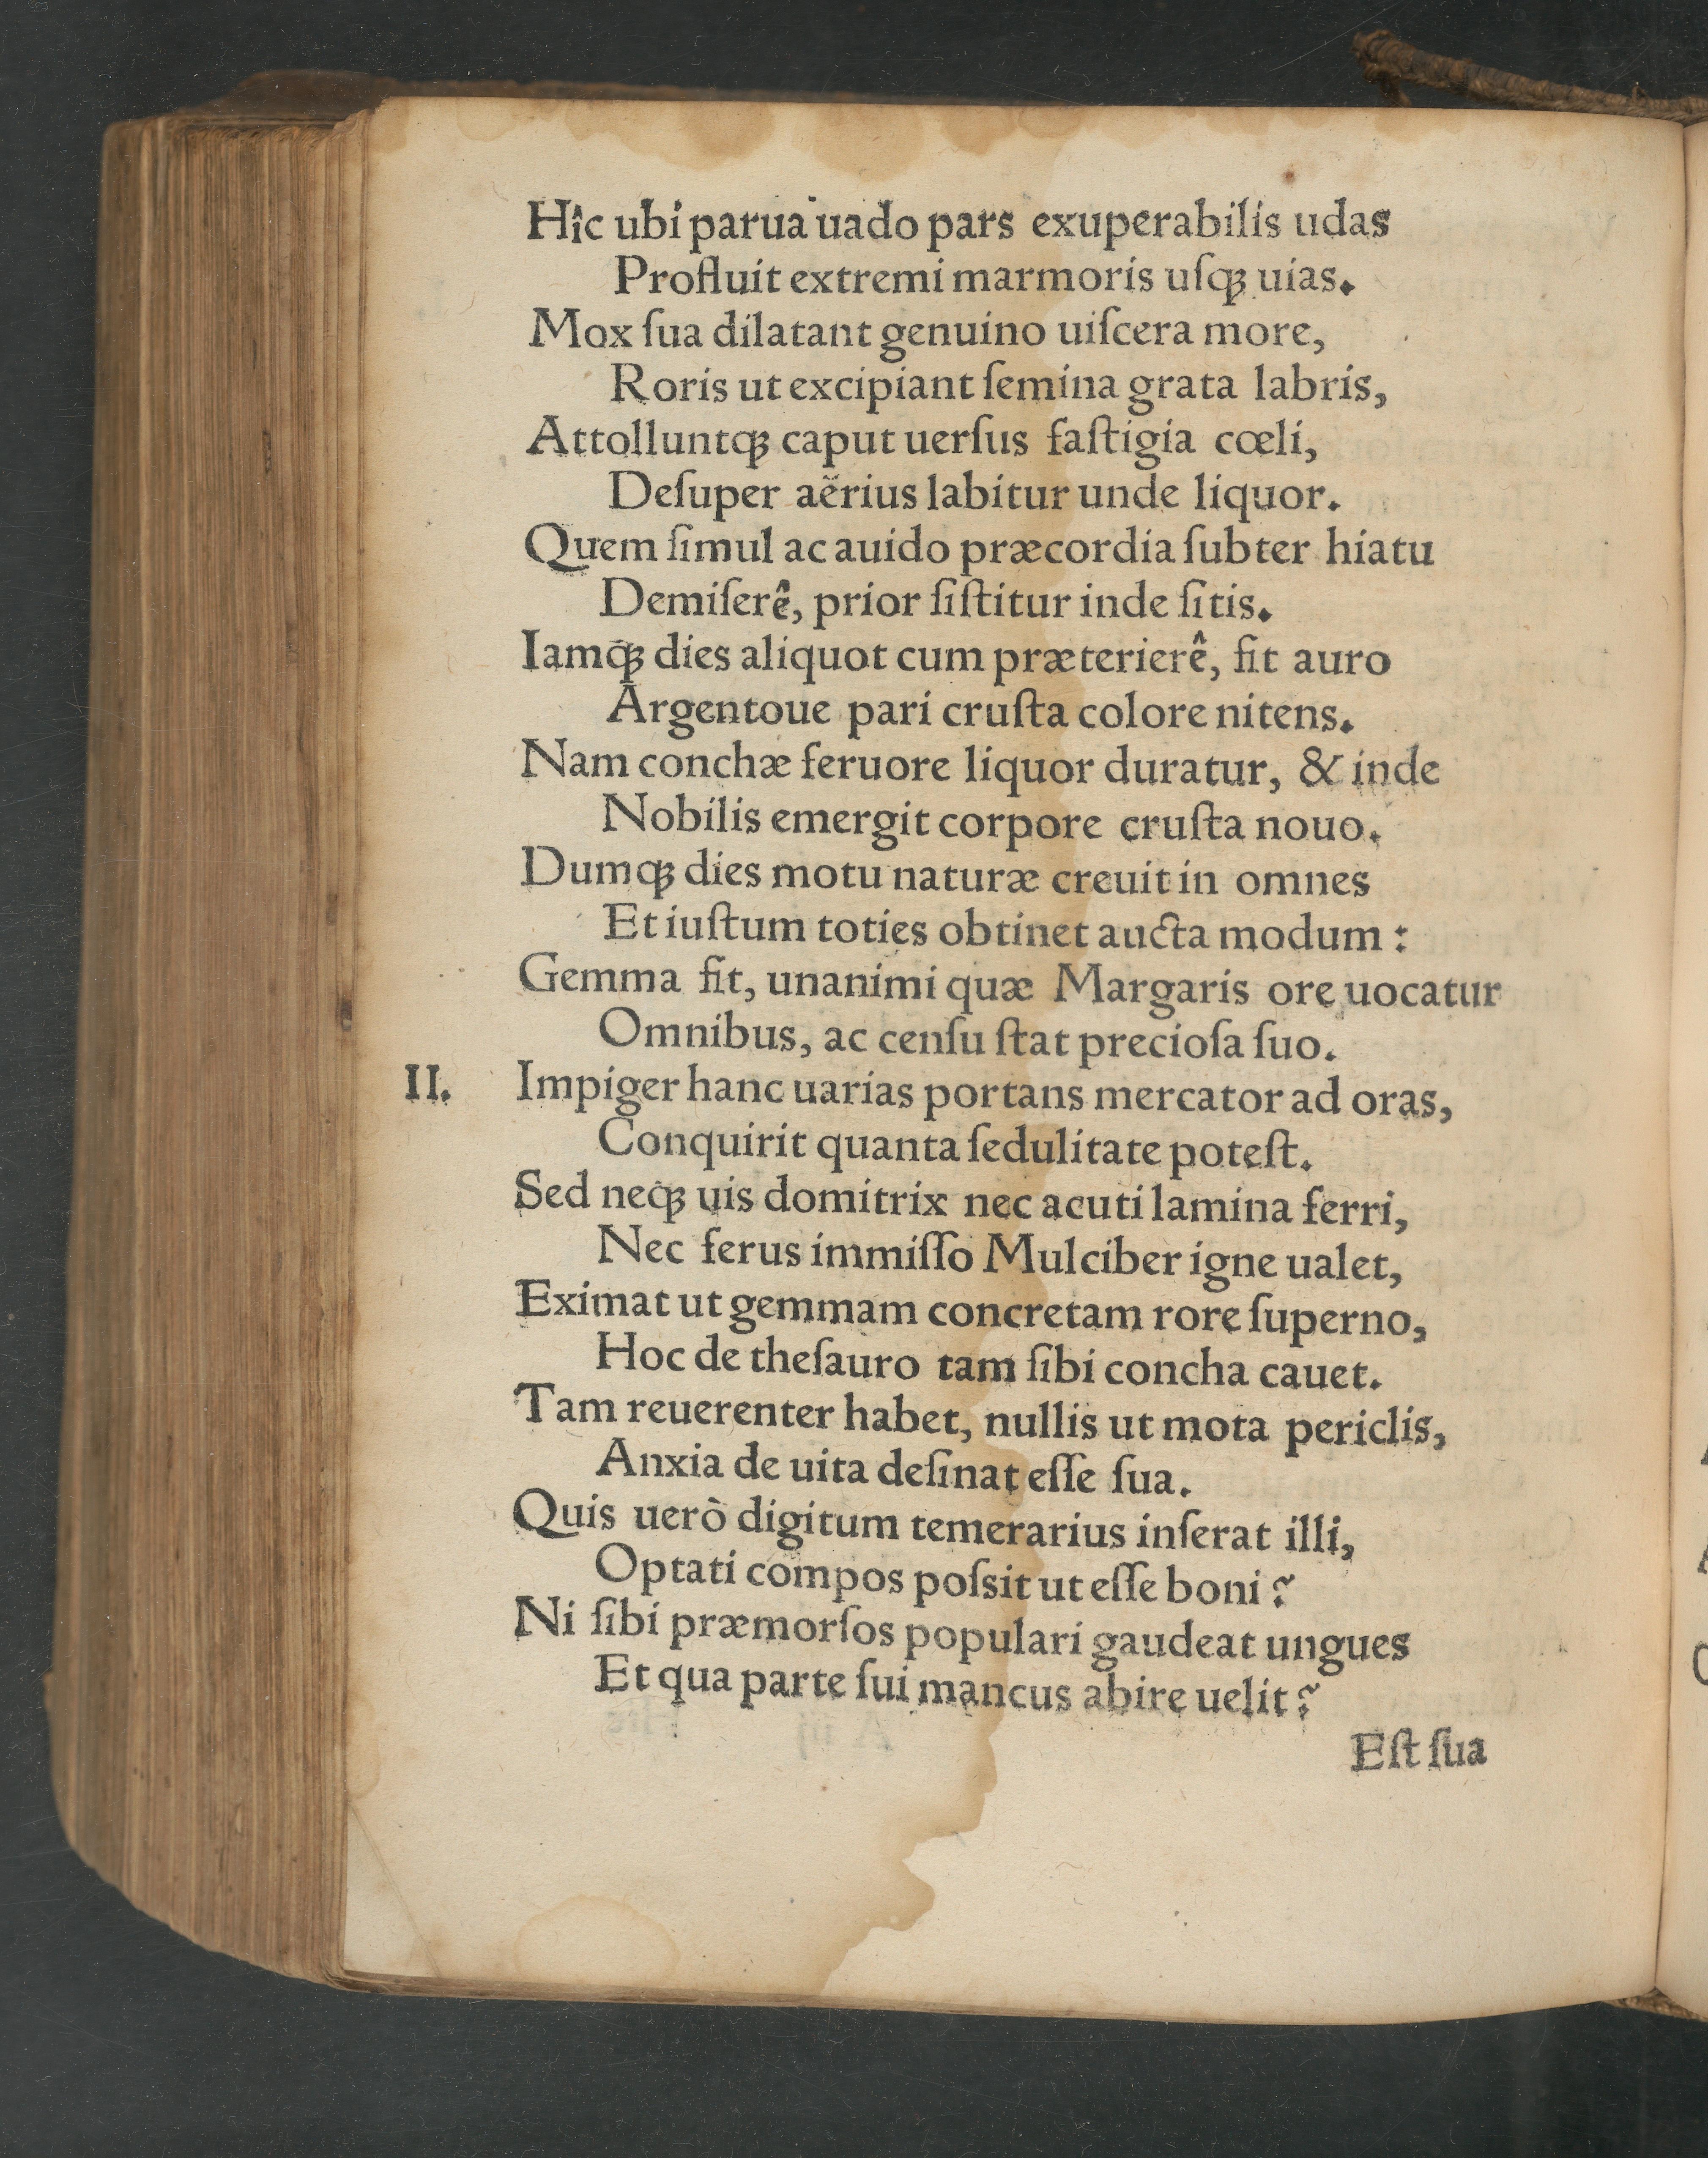 Hîc ubi parua uado pars exuperabilis udas
Profluit extremi marmoris uſqꝫ uias.
Mox ſua dilatant genuino uiſcera more,
Roris ut excipiant ſemina grata labris,
Attolluntqꝫ caput uerſus faſtigia cœli,
Deſuper aërius labitur unde liquor.
Quem ſimul ac auido præcordia ſubter hiatu
Demiſerê, prior ſiſtitur inde ſitis.
Iamqꝫ dies aliquot cum præterierê, fit auro
Argentoue pari cruſta colore nitens.
Nam conchæ feruore liquor duratur, & inde
Nobilis emergit corpore cruſta nouo.
Dumqꝫ dies motu naturæ creuit in omnes
Et iuſtum toties obtinet aucta modum :
Gemma fit, unanimi quæ Margaris ore uocatur
Omnibus, ac cenſu ſtat precioſa ſuo.
II. Impiger hanc uarias portans mercator ad oras,
Conquirit quanta ſedulitate poteſt.
Sed neqꝫ uis domitrix nec acuti lamina ferri,
Nec ferus immiſſo Mulciber igne ualet,
Eximat ut gemmam concretam rore ſuperno,
Hoc de theſauro tam ſibi concha cauet.
Tam reuerenter habet, nullis ut mota periclis,
Anxia de uita deſinat eſſe ſua.
Quis uerò digitum temerarius inſerat illi,
Optati compos poſsit ut eſſe boni ?
Ni ſibi præmorſos populari gaudeat ungues
Et qua parte ſui mancus abire uelit ?
Eſt ſua